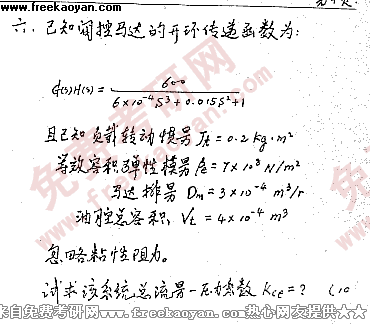 www.freekaoyan.com
六、已知阀控马达的开环传递函数为:
G(s)H(s) = 600
6×10⁻⁴S³+0.015S²+1
且已知负载转动惯量 Jt=0.2 kg·m²
等效容积弹性模量 βe=7×10⁸ N/m²
马达排量 Dm=3×10⁻⁴ m³/r
油腔总容积, Vt = 4×10⁻⁴ m³
忽略粘性阻力。
试求该系统总流量-压力系数 Kce=? (10
来自免费考研网www.freekaoyan.com热心网友提供★★